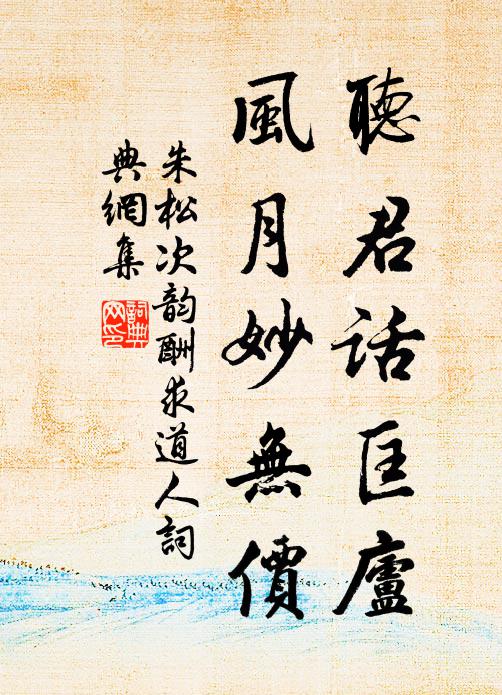 聽君話匡廬
風月妙無價
朱松次韵酬求道人詞
典網集
詞典網印